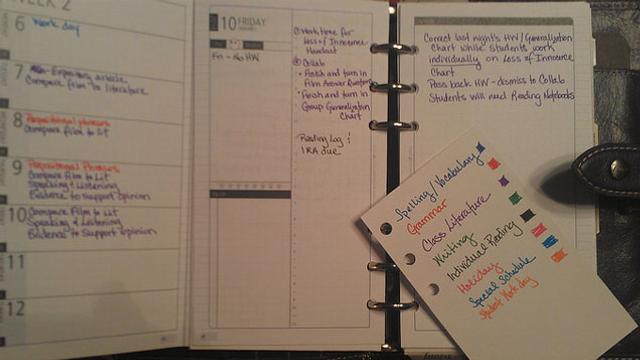 WEEK 2
6
Work day
7
Expository article
Compare film to literature
8
Prepositional phrases
Compare film to lit
9
Prepositional Phrases
Compare Film to Lit
Speaking & Listening
Evidence to support opinion
10
Compare Film to Lit
Speaking & Listening
Evidence to support opinion
11
12
10 FRIDAY
Fri - No HW
① Work time for
Loss of Innocence
Handout
② Collab
• Finish and turn in
Film Answer
• Finish and turn in
Group Generalization
Chart
Reading Log &
IRA due
Correct last night's HW/Generalization
Chart while students work
individually on Loss of Innocence
Chart
Pass back HW - dismiss to Collab
Students will need Reading Notebooks
Spelling/Vocabulary
Grammar
Class Literature
Writing
Individual Reading
Holiday
Special Schedule
Student Work day